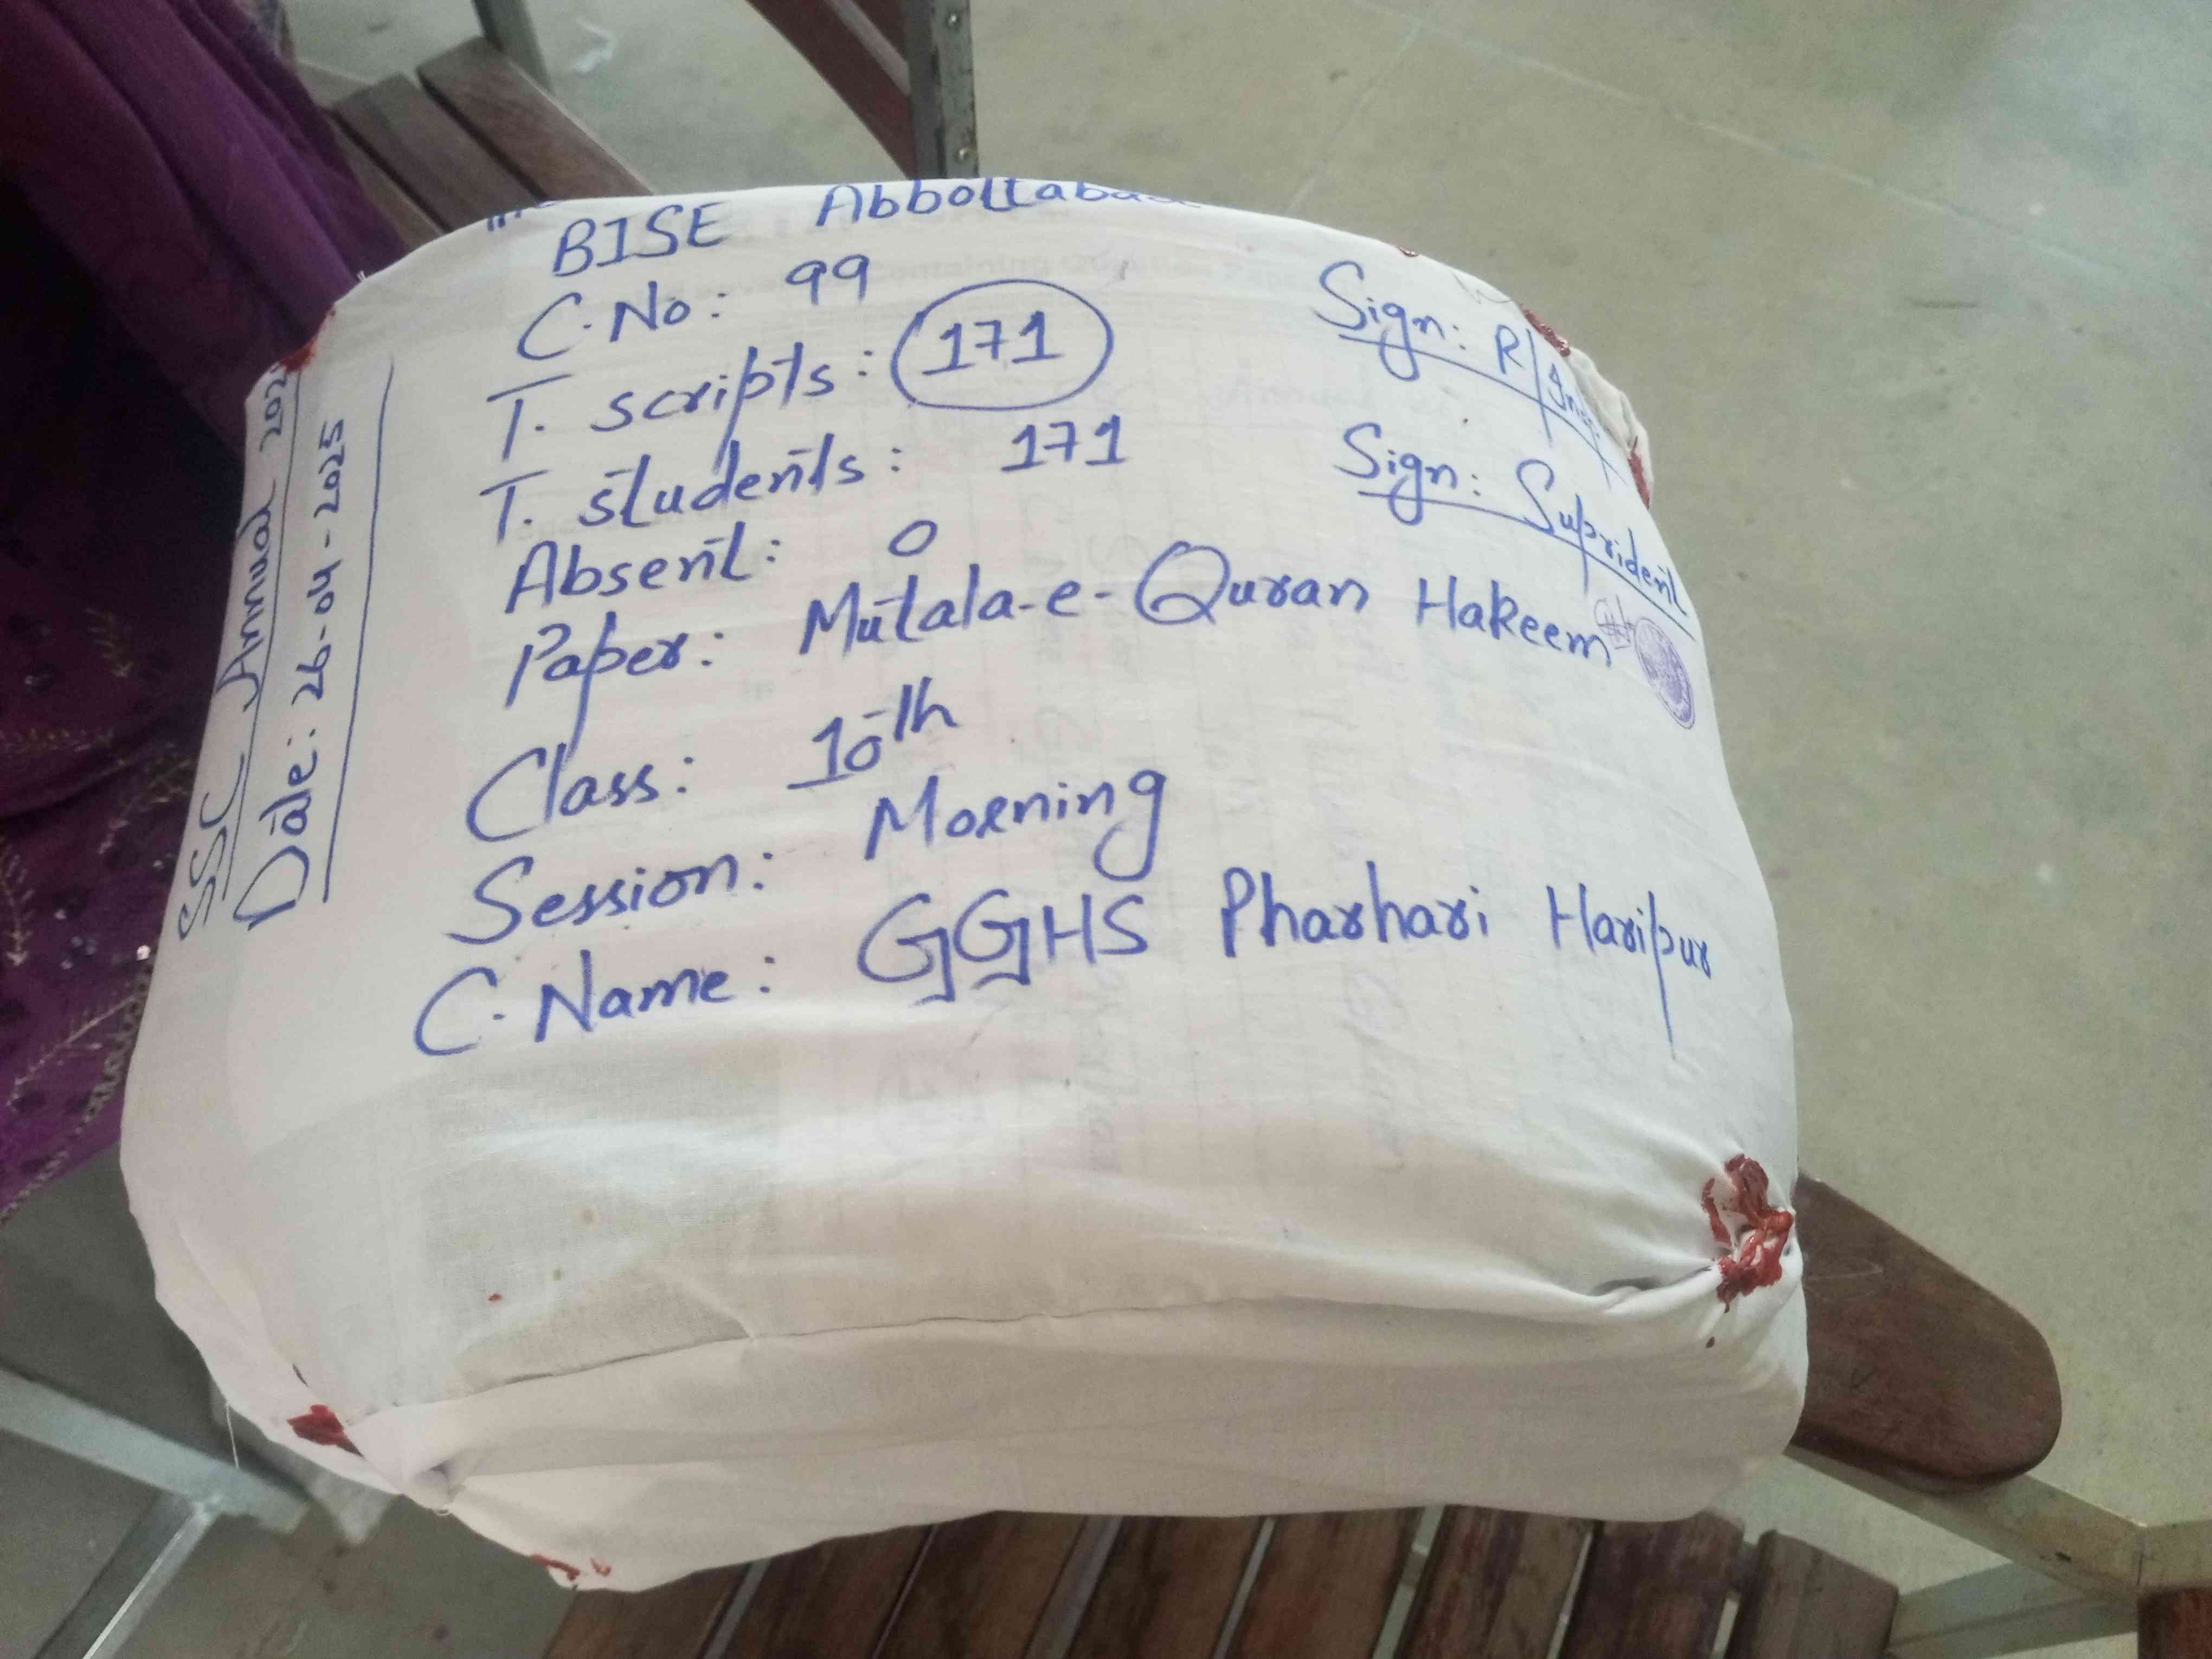 BISE Abbottabad
C. No: 99
T. scripts: 171
T. students: 171
Absent: 0
Paper: Mutala-e-Quran Hakeem
Class: 10th
Session: Morning
C. Name: GGHS Pharhari Haripur
Sign: R/
Sign: Suprident
SSC Annual
Date: 26-04-2025